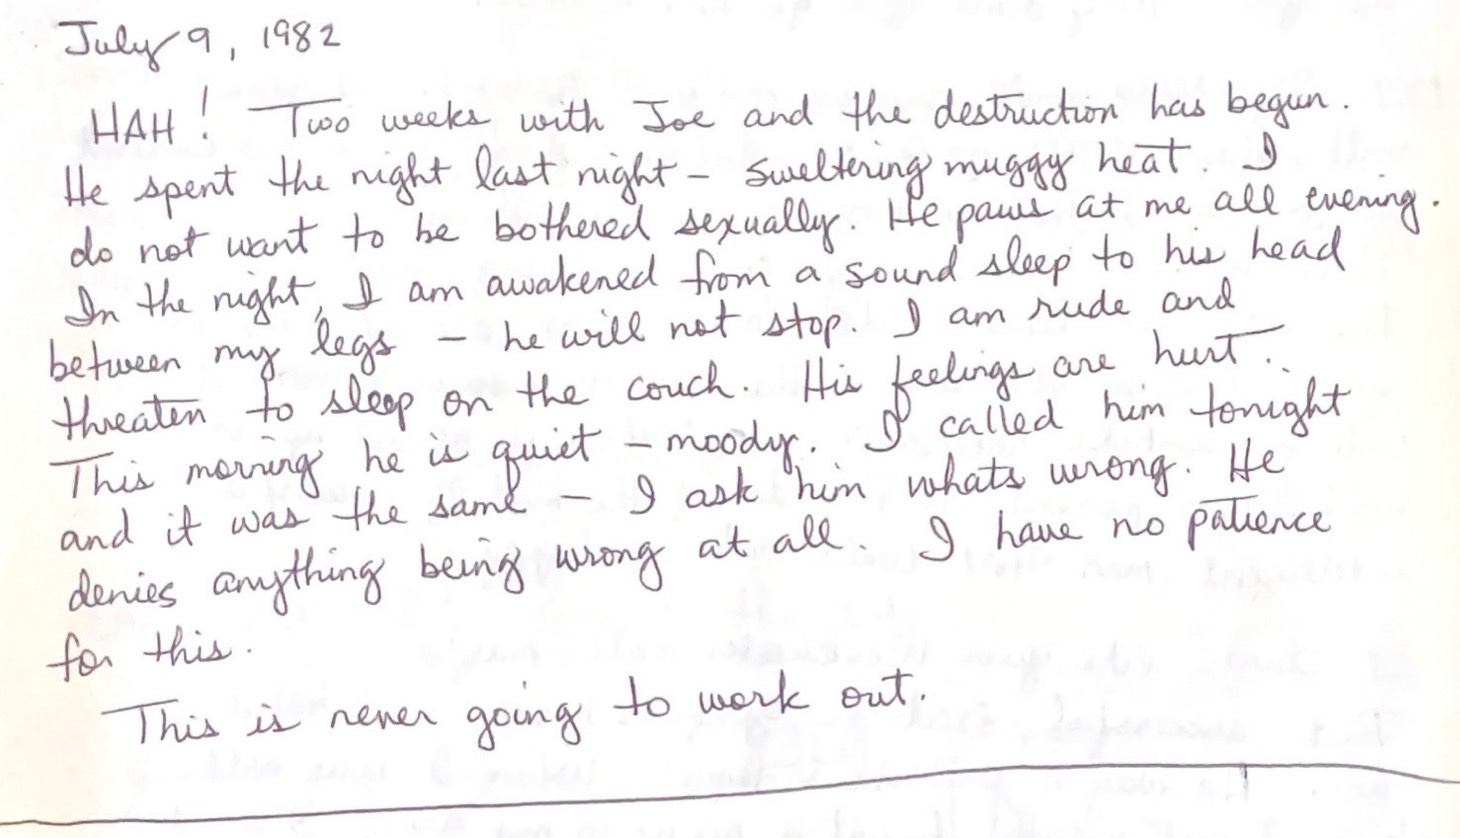 July 9, 1982
HAH! Two weeks with Joe and the destruction has begun.
He spent the night last night - sweltering muggy heat. I
do not want to be bothered sexually. He paws at me all evening.
In the night, I am awakened from a sound sleep to his head
between my legs - he will not stop. I am rude and
threaten to sleep on the couch. His feelings are hurt.
This morning he is quiet - moody. I called him tonight
and it was the same - I ask him whats wrong. He
denies anything being wrong at all. I have no patience
for this.
This is never going to work out.